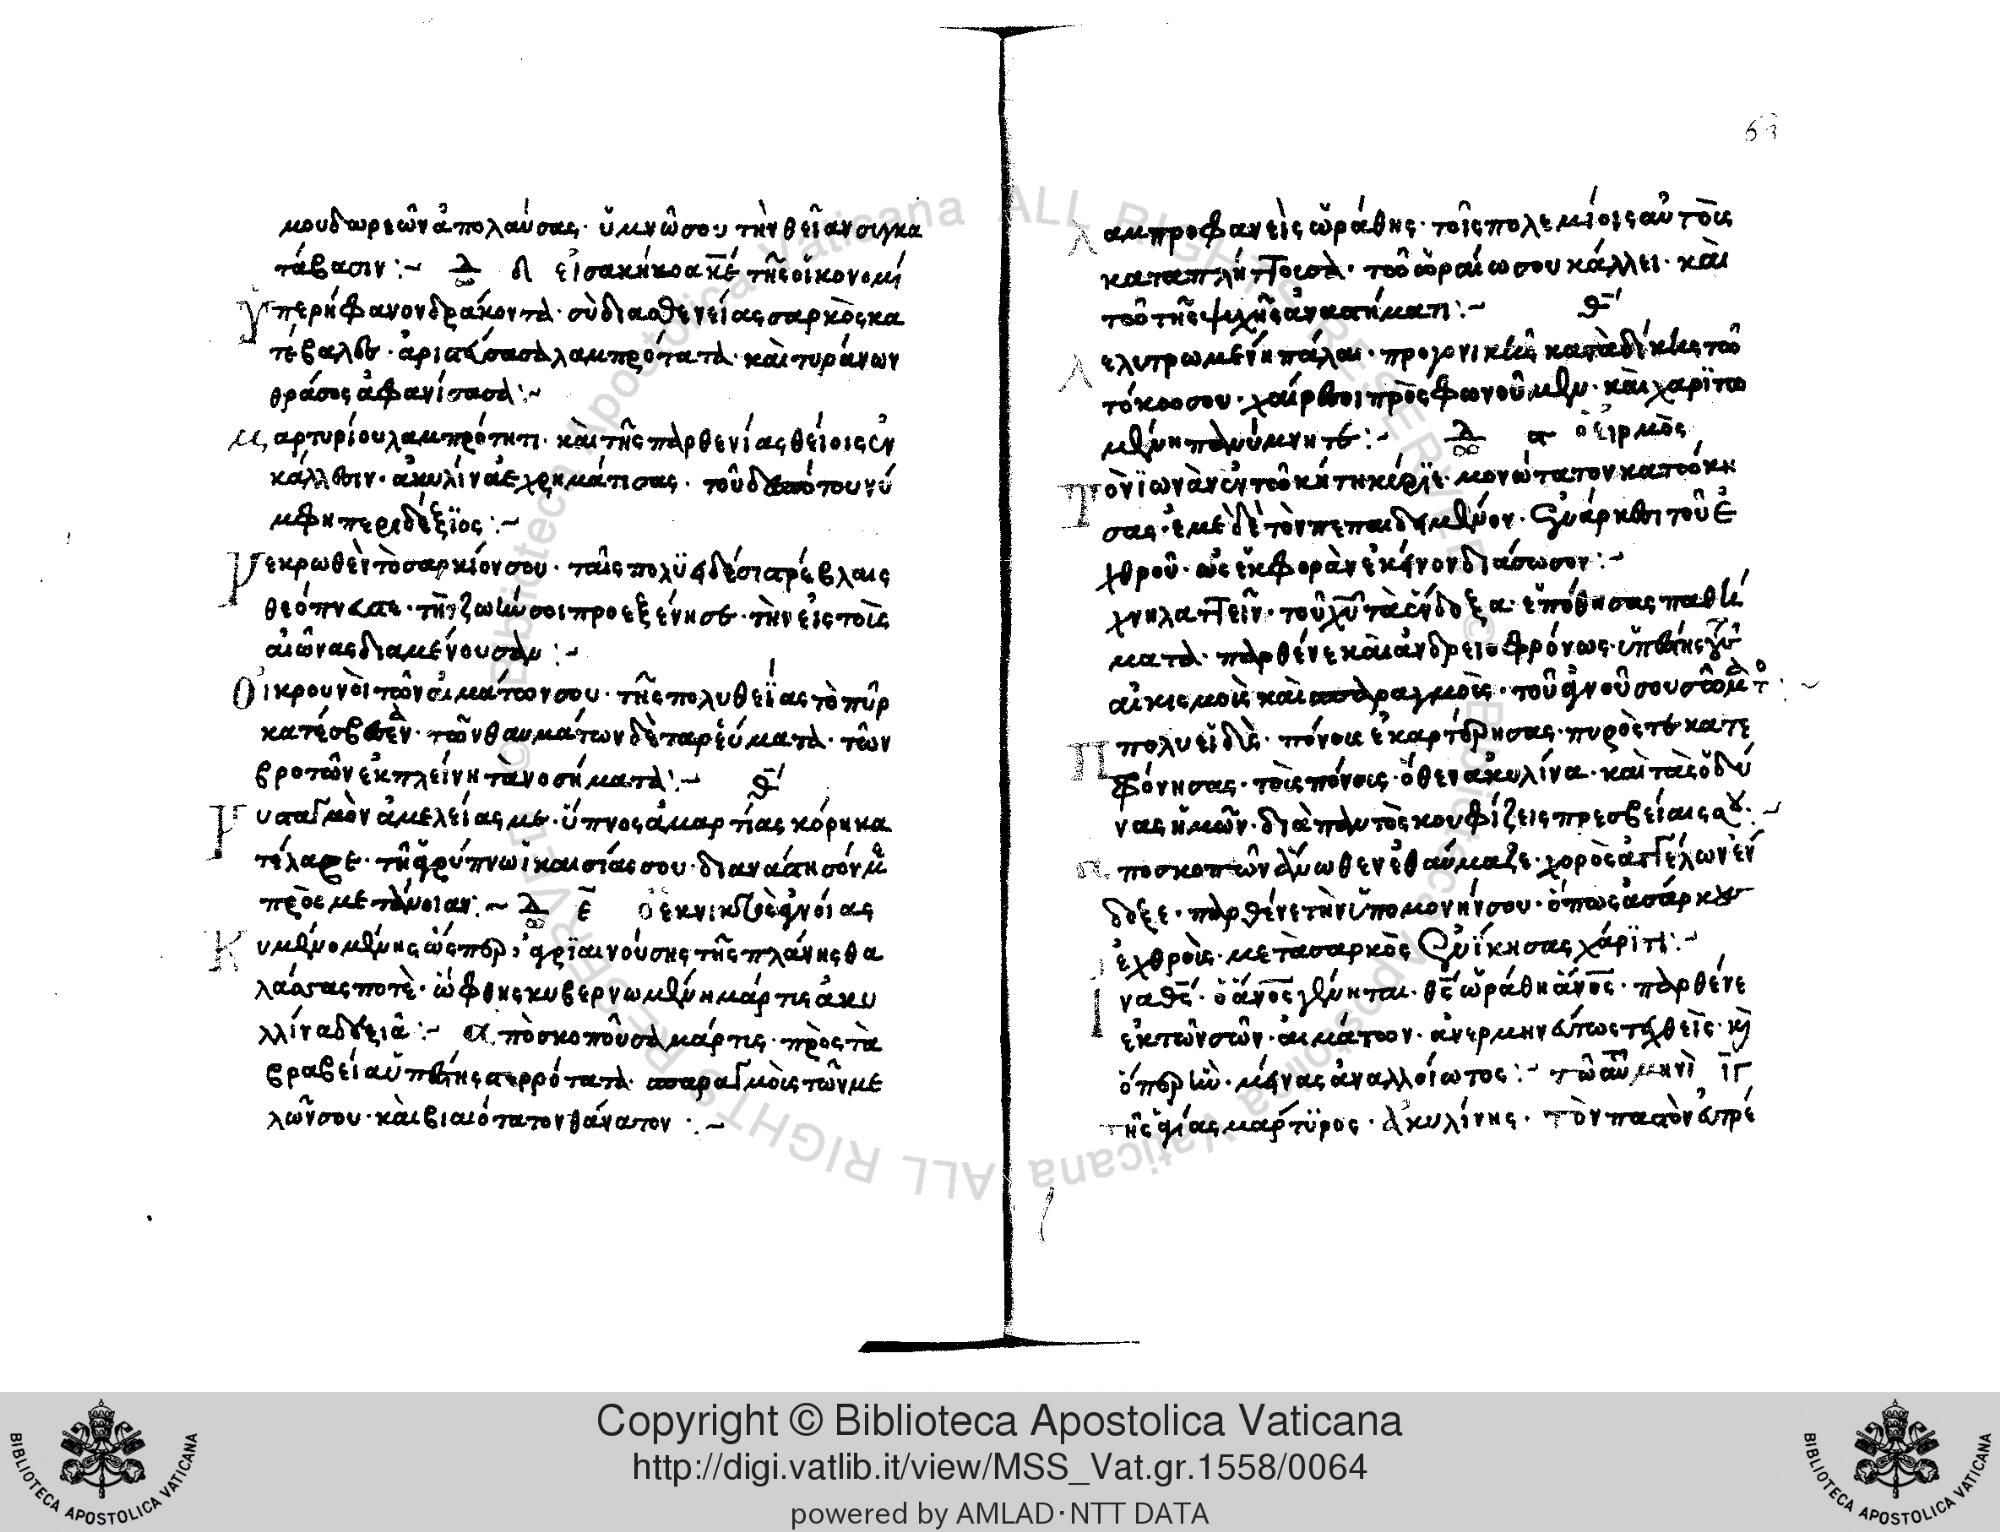 μου δωρεῶν ἀπολαύσας· ὕμνῶ σου τὴν θεῖαν συγκα
τάβασιν :~ εἰσακήκοα κε τῆς οἰκονομί
ὑπερήφανον δράκοντα· σὺ δι ασθενείας σαρκὸς κα
τέβαλες· ἀριστεύσασα λαμπρότατα· καὶ τυράνων
θράσος ἀφανίσασα :~
μαρτυρίου λαμπρότητι· καὶ τῆς παρθενίας θείοις ἐν
κάλλεσιν· ἀκυλίνα ἐχρημάτισας· τοῦ δεσπότου νύ
μφη περιδέξϊος :~
Νεκρωθὲν τὸ σαρκίον σου· ταῖς πολϋειδέσι στρέβλαις
θεόπνευστε· τὴν ζωὴν σοι προεξένησε· τὴν εἰς τοὺς
αἰῶνας διαμένουσαν :~
Οἱ κρουνοὶ τῶν αἱμάτων σου· τῆς πολυθεΐας τὸ πῦρ
κατέσβεσαν· τῶν θαυμάτων δὲ τα ρεύματα· τῶν
βροτῶν ἐκπλείνη τὰ νοσήματα :~ θ
Νυσταγμὸν ἀμελείας με· ὕπνος ἁμαρτίας κόρη κα
τέλαβε· τῇ ἀγρύπνω ἱκεσίας σου· διανάστησόν με
πρὸς μετάνοιαν :~ ε ὁ ἐκ νυκτὸς ἀγνοίας
Κυμαινομένης ὥσπερ, ἀγρϊαινούσης τῆς πλάνης θα
λάσσας ποτὲ· ὤφθης κυβερνωμένη μάρτις ἀκυ
λλίνα δεξιᾶ :~ ἀποσκοποῦσα μάρτις· πρὸς τὰ
βραβεία ὑπέστης στερρότατα· σπαραγμοὺς τῶν με
λῶν σου· καὶ βιαιότατον θάνατον :~
63
λαμπροφανεὶς ὡράθης· τοῖς πολεμίοις αὐτοὺς
καταπλήττουσα· τοῦ ὡραίω σου κάλλει· καὶ
τοῦ τῆς ψυχῆς ἀναστήματι :~ θ
λελυτρωμένη πάλαι· προγονικῆς καταδίκης τοῦ
τόκοο σου· χαίρε σοι προσφωνοῦμεν· καὶ χαριτω
μένη πανύμνητε :~ α ὁ εἱρμὸς
Τὸν ϊωνὰν ἐν τοῦ κήτη κύρϊε· μονώτατον κατοόκη
σας· ἐμὲ δὲ τὸν πεπαιδημένον· ἐν ἄρκεσι τοῦ ἐ
χθροῦ· ὡς ἐκ φορὰν ἐκείνον διάσωσον :~
χνηλαττεῖν· τοῦ χῦ τὰ ἔνδοξα· ἐπόθησας παθή
ματα· παρθένε καὶ ἀνδρειοφρόνως· ὑπέστης
αἰκισμοὺς καὶ σπαραγμοὺς· τοῦ ἁγνοῦ σου σώματ :~
πολυειδεῖς· πόνους ἐκαρτέρησας· πυρὸς τε κατε
φόνησας· τοῖς πόνοις· ὅθεν ἀκυλίνα· καὶ τὰς ὀδύ
νας ἡμῶν· διὰ παντὸς κουφίζεις πρεσβείαις σου :~
ἀποσκοπῶν ἄνωθεν ἐθαύμαζε· χορὸς ἀγγέλων ἔν
δοξε· παρθένε τὴν ὑπομονήν σου· ὅπως ἀσάρκους
ἐχθροὺς· μετὰ σαρκὸς ἐνίκησας χάριτι :~
ἵνα θς· ὁ ἄνος γένηται· θς ὡράθη ἄνος· παρθένε
ἐκ τῶν σῶν· αἱμάτοον· ἀνερμηνεύτως τεχθεῖς· κὶ
ὅπερ ἦν· μείνας ἀναλλοίωτος :~ τῶ αὐ μηνὶ ιγ
τῆς ἁγίας μάρτϋρος· Ἀκυλίνης·
Copyright © Biblioteca Apostolica Vaticana
http://digi.vatlib.it/view/MSS_Vat.gr.1558/0064
powered by AMLAD·NTT DATA
BIBLIOTECA APOSTOLICA VATICANA
BIBLIOTECA APOSTOLICA VATICANA